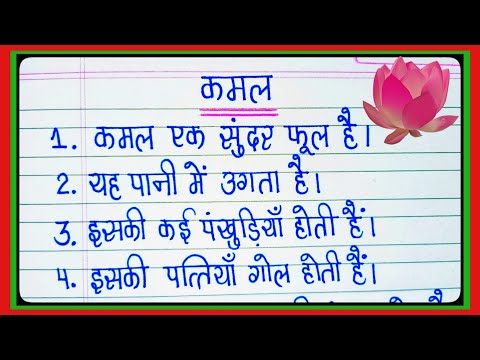 कमल
1. कमल एक सुंदर फूल है।
2. यह पानी में उगता है।
3. इसकी कई पंखुड़ियाँ होती हैं।
4. इसकी पत्तियाँ गोल होती हैं।